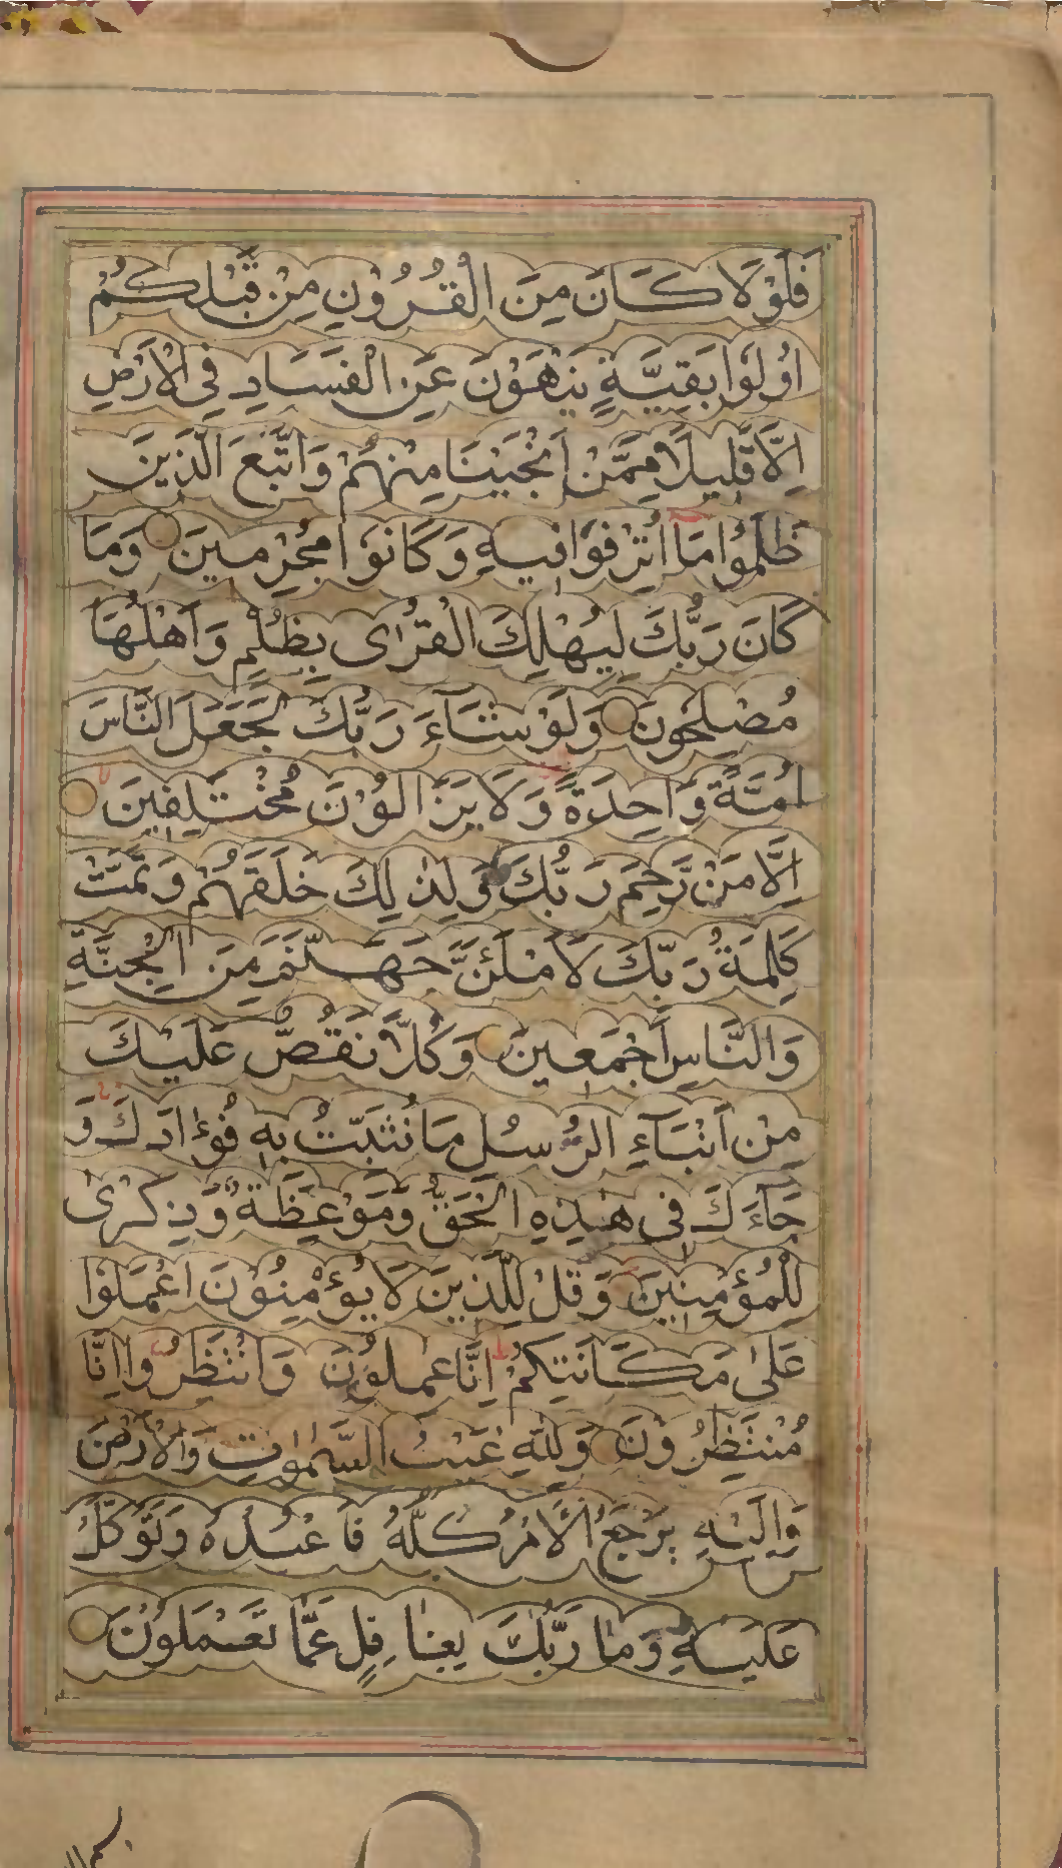 فَلَوْلَا كَانَ مِنَ الْقُرُوْنِ مِنْ قَبْلِكُمْ
اُولُوْا بَقِيَّةٍ يَنْهَوْنَ عَنِ الْفَسَادِ فِي الْاَرْضِ
اِلَّا قَلِيلًا مِمَّنْ اَنْجَيْنَا مِنْهُمْ وَاتَّبَعَ الَّذِينَ
ظَلَمُوْا مَا اُتْرِفُوْا فِيهِ وَكَانُوْا مُجْرِمِينَ وَمَا
كَانَ رَبُّكَ لِيُهْلِكَ الْقُرٰى بِظُلْمٍ وَاَهْلُهَا
مُصْلِحُونَ وَلَوْ شَآءَ رَبُّكَ لَجَعَلَ النَّاسَ
اُمَّةً وَاحِدَةً وَلَا يَزَالُوْنَ مُخْتَلِفِينَ
اِلَّا مَنْ رَحِمَ رَبُّكَ وَلِذٰلِكَ خَلَقَهُمْ وَتَمَّتْ
كَلِمَةُ رَبِّكَ لَاَمْلَئَنَّ جَهَنَّمَ مِنَ الْجِنَّةِ
وَالنَّاسِ اَجْمَعِينَ وَكُلًّا نَقُصُّ عَلَيْكَ
مِنْ اَنْبَآءِ الرُّسُلِ مَا نُثَبِّتُ بِهٖ فُؤَادَكَ وَ
جَآءَكَ فِى هٰذِهِ الْحَقُّ وَمَوْعِظَةٌ وَذِكْرٰى
لِلْمُؤْمِنِينَ وَقُلْ لِلَّذِينَ لَا يُؤْمِنُوْنَ اعْمَلُوْا
عَلٰى مَكَانَتِكُمْ اِنَّا عٰمِلُوْنَ وَانْتَظِرُوا اِنَّا
مُنْتَظِرُوْنَ وَلِلّٰهِ غَيْبُ السَّمٰوٰتِ وَالْاَرْضِ
وَاِلَيْهِ يُرْجَعُ الْاَمْرُ كُلُّهُ فَاعْبُدْهُ وَتَوَكَّلْ
عَلَيْهِ وَمَا رَبُّكَ بِغَافِلٍ عَمَّا تَعْمَلُوْنَ